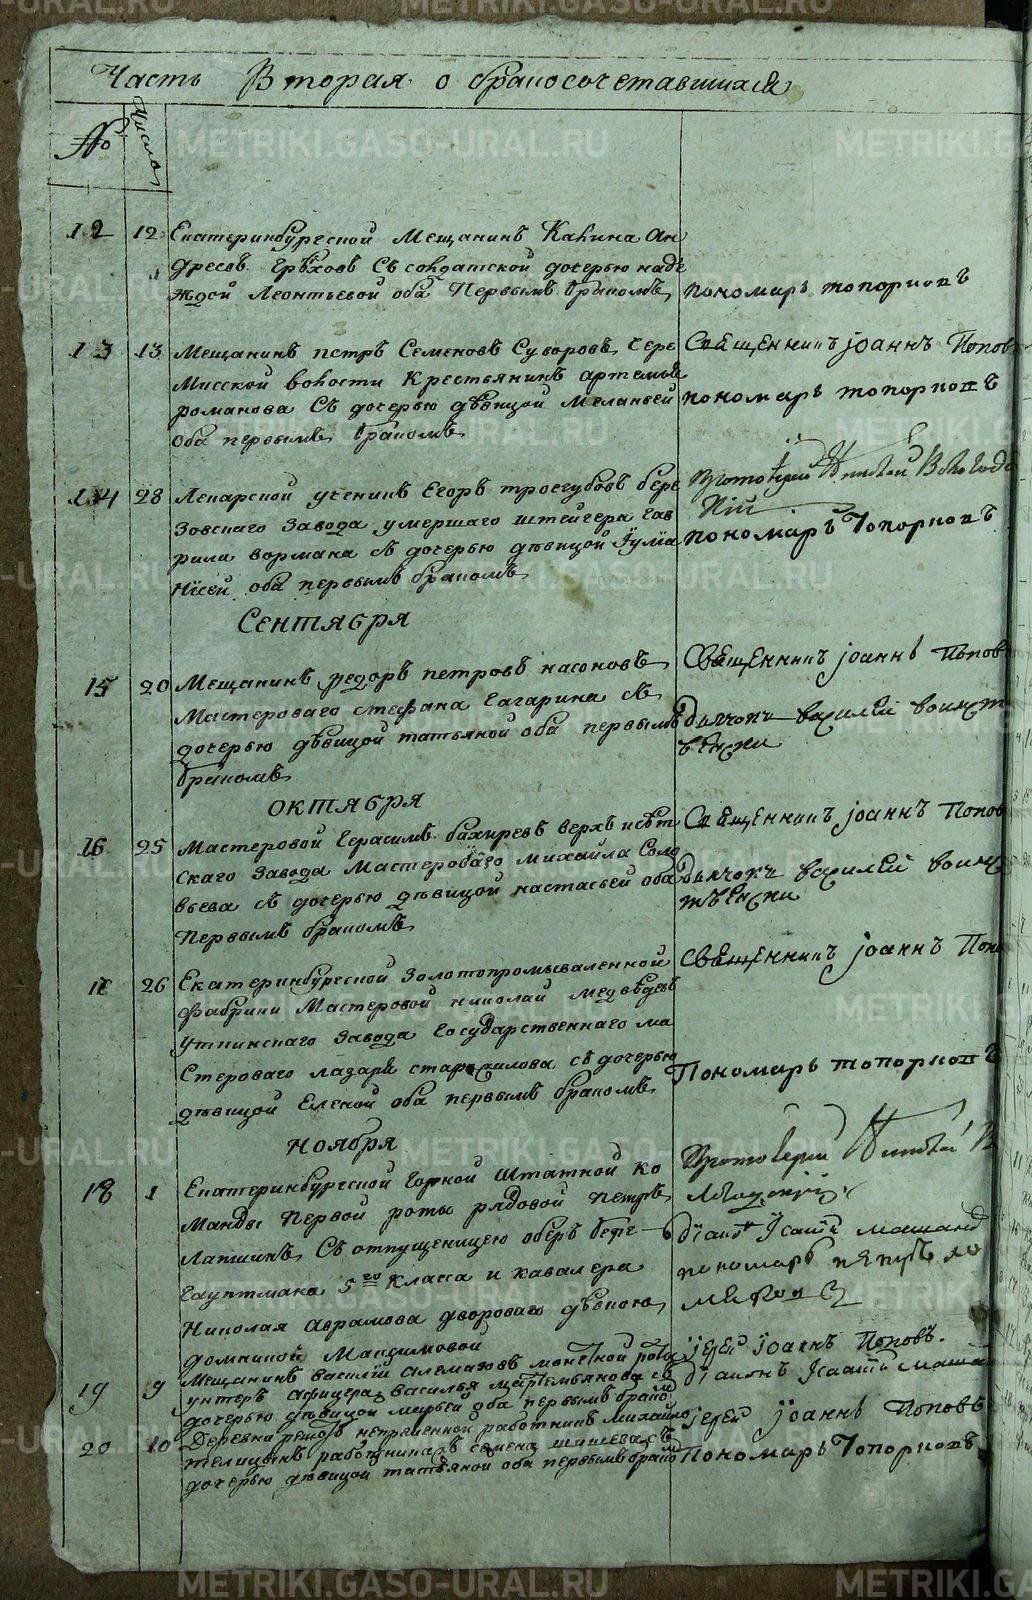 Часть Вторая о бракосочетавшихся
№ число
12 12 Екатеринбургской Мещанинъ Калина Ан
дреевъ Грѣховъ Съ солдатской дочерью наде
ждой Леонтьевой оба Первымъ бракомъ
пономарь топорковъ
13 13 Мещанинъ петръ Семеновъ Суворовъ, Чере
Мисской волости Крестьянинъ артемья
романова Съ дочерью дѣвицой Меланьей
оба первымъ бракомъ
Священникъ Iоаннъ Попов
пономарь топорковъ
14 28 Лекарской ученикъ Егоръ троегубовъ бере
Зовскаго Завода умершаго штейгера Гав
рила вормана съ дочерью дѣвицой Iулiа
нiей оба первымъ бракомъ
Протоiерей
пономарь Топорковъ
Сентября
15 20 Мещанинъ федоръ петровъ насоновъ
Мастероваго стефана Гагарина съ
дочерью дѣвицой татьяной оба первымъ
бракомъ
Священникъ Iоаннъ Попов
дьячокъ василей воинст
венски
октября
16 25 Мастеровой Герасимъ бахиревъ верхъ исѣт
скаго завода Мастероваго михайла Соло
вьева съ дочерью дѣвицой настасьей оба
Первымъ бракомъ
Священникъ Iоаннъ Попов
дьячокъ василей воинс
твенски
17 26 Екатеринбургской Золотопромываленной
фабрики Мастеровой николай медвѣдевъ
уткинскаго завода Государственнаго ма
Стероваго лазаря съ дочерью
дѣвицой Еленой оба первымъ бракомъ
Священникъ Iоаннъ Попо
Пономарь топорковъ
Ноября
18 1 Екатеринбургской Горной Штатной ко
Манды Первой роты рядовой Петръ
Лапшинъ, Съ отпущеницею оберъ бергъ
гауптмана 5го класса и кавалера
Николая Аврамова дворовою дѣвкою
домникой Максимовой
Протоiерей
дiаконъ Iсакiй
пономарь
19 9 Мещанинъ василiй алемазовъ монетной роты
унтеръ афицера василья мартемьянова съ
дочерью дѣвицой марьей оба первымъ бракомъ
iерей Iоаннъ Поповъ.
дiаконъ Iсаакiй
20 10 Деревни решотъ непременной работникъ михайло
телицынъ работника семена съ
дочерью дѣвицой татьяной оба первымъ бракомъ
iерей Iоаннъ Поповъ
Пономарь Топорковъ
METRIKI.GASO-URAL.RU